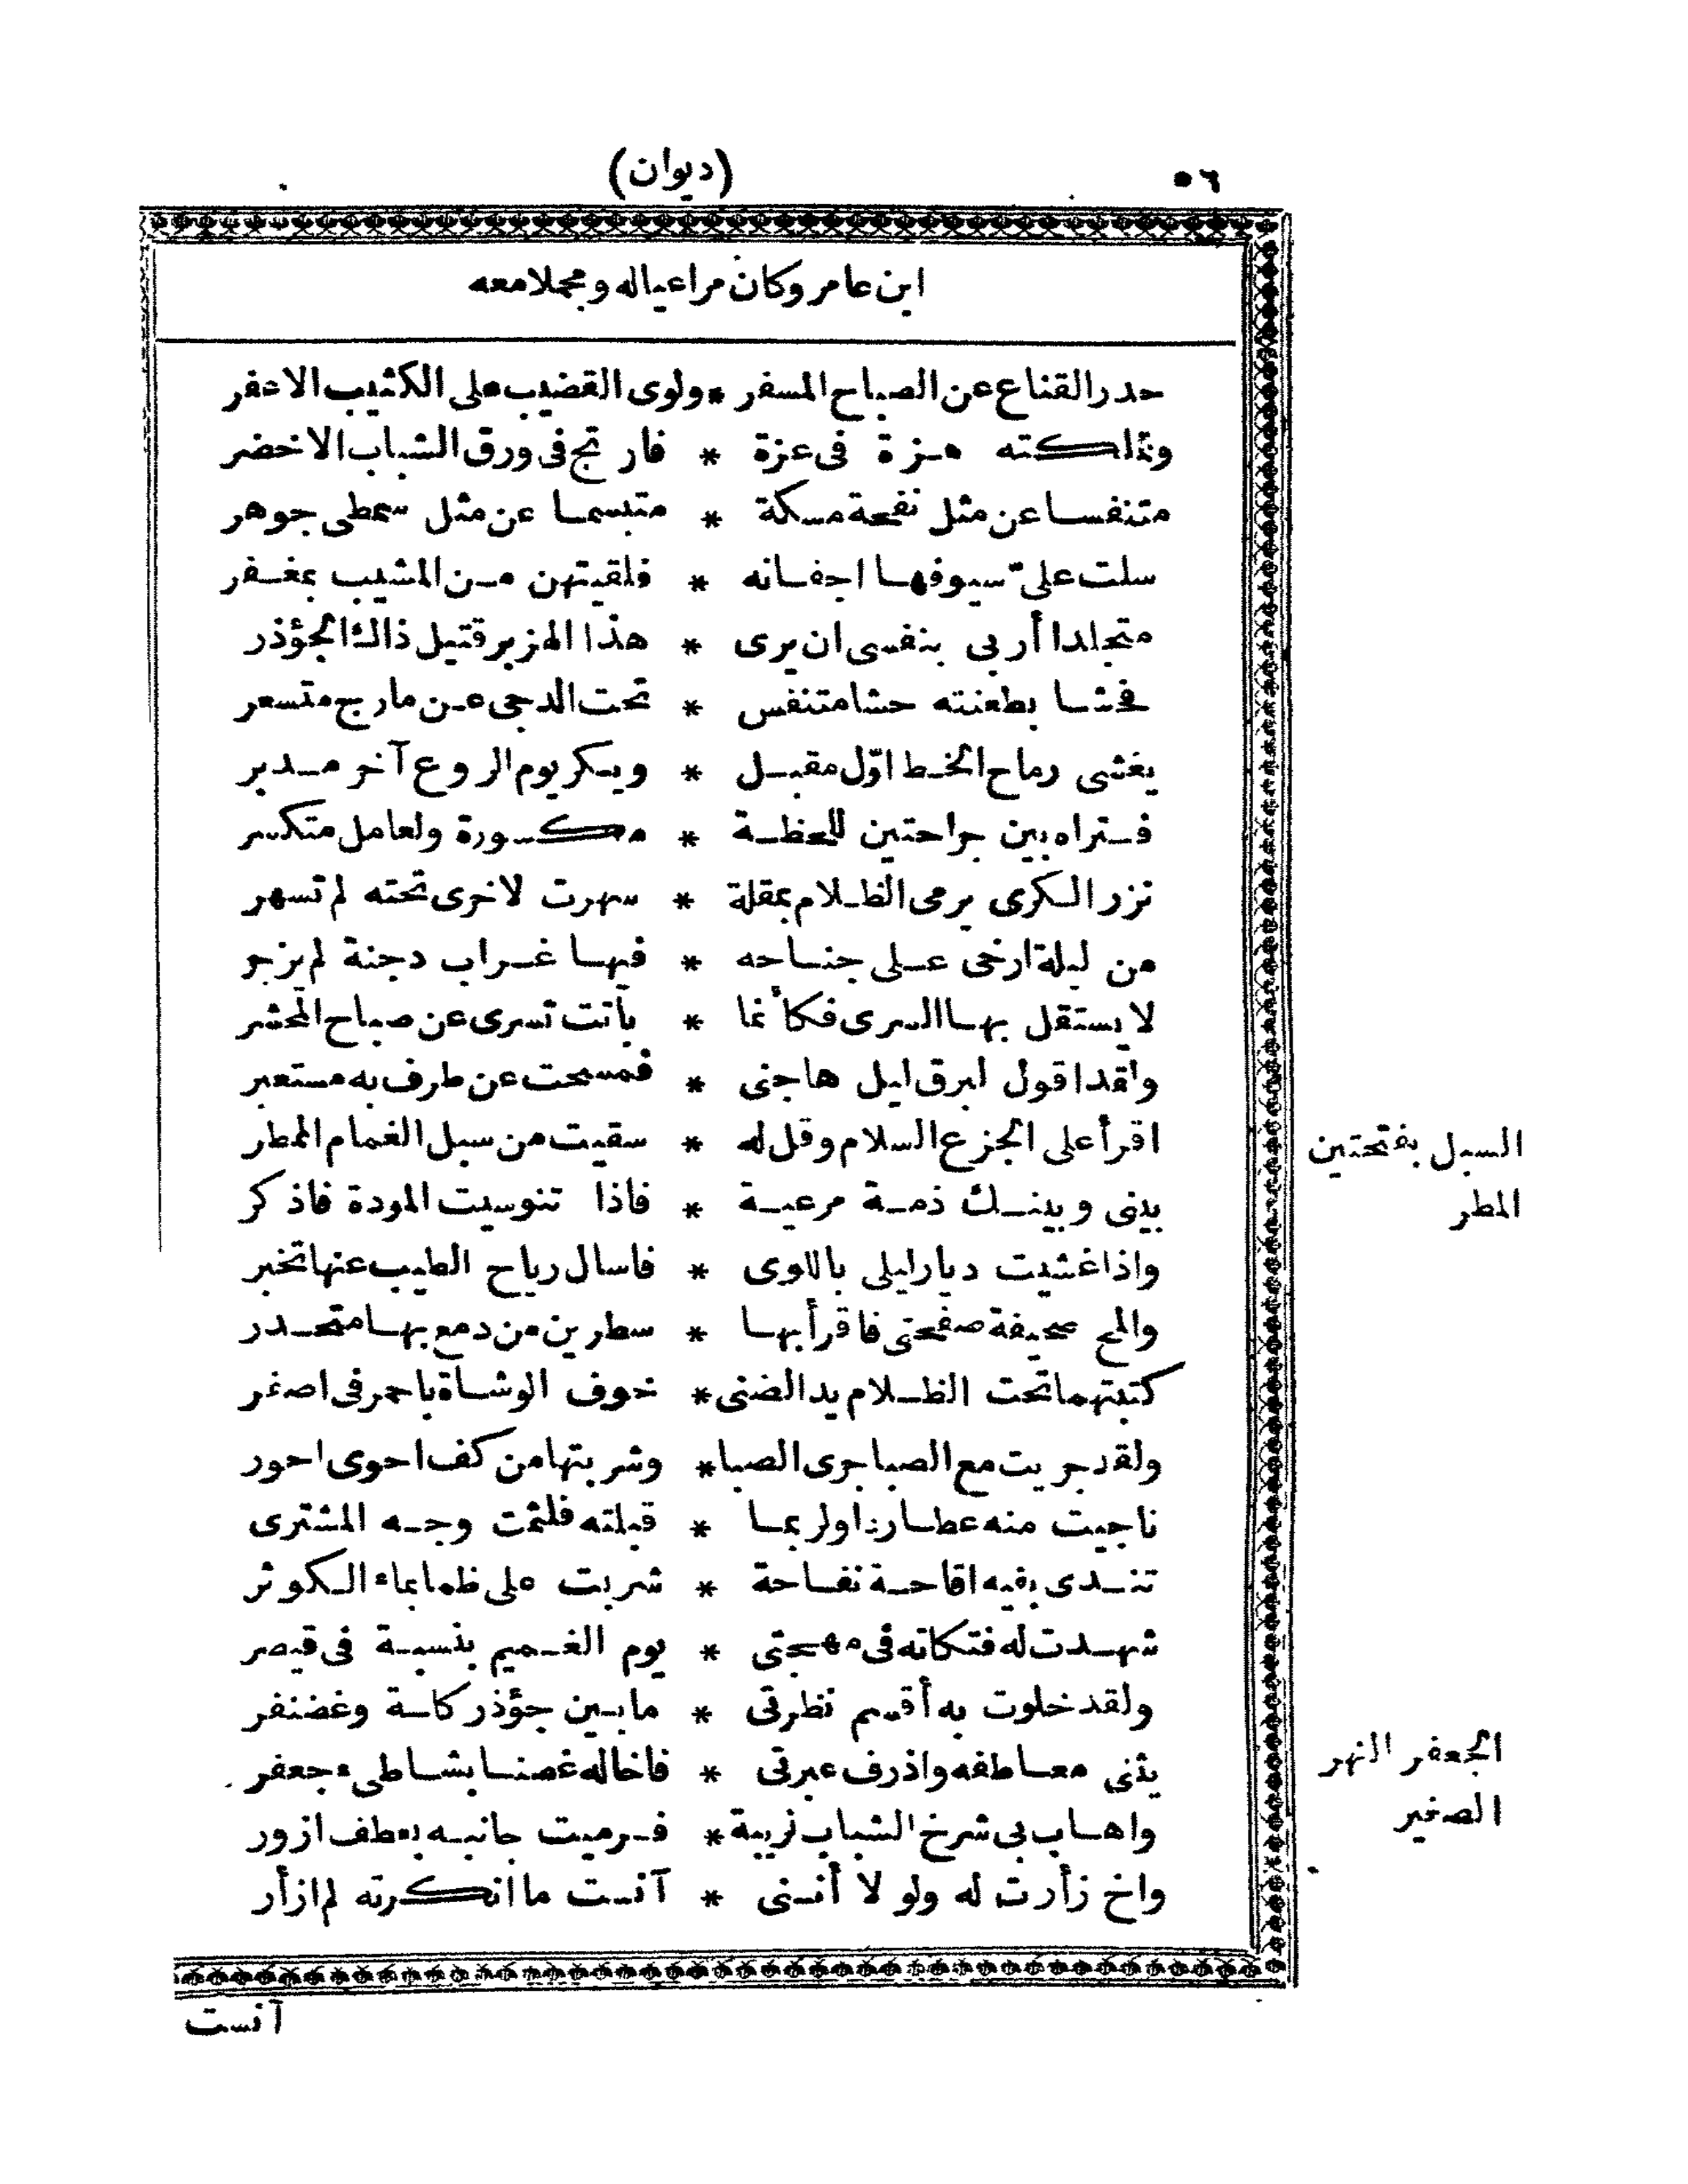 ٥٦
(ديوان)
ابن عامر وكان مراعياله ومجملا معه
حدر القناع عن الصباح المسفر * ولوى القضيب على الكثيب الاعفر
وتملكته هزة فى عزة * فارتج فى ورق الشباب الاخضر
متنفسا عن مثل نفحة مسكة * متبسما عن مثل سمطى جوهر
سلت علىّ سيوفها اجفانه * فلقيتهن من المشيب بمغفر
متجلدا أربى بنفسى ان يرى * هذا الهزبر قتيل ذاك الجؤذر
فحشا بطعنته حشا متنفس * تحت الدجى عن مارج متسعر
يغشى رماح الخط اوّل مقبل * ويكر يوم الروع آخر مدبر
فتراه بين جراحتين للحظة * مكسورة ولعامل متكسر
نزر الكرى يرمى الظلام بمقلة * سهرت لاخرى تحته لم تسهر
من ليلة ارخى على جناحه * فيها غراب دجنة لم يزجر
لا يستقل بها السرى فكأنما * باتت تسرى عن صباح المحشر
ولقد اقول لبرق ليل هاجنى * فمسحت عن طرف به مستعبر
اقرأ على الجزع السلام وقل له * سقيت من سبل الغمام الممطر
السبل بفتحتين
المطر
بينى وبينك ذمة مرعية * فاذا تنوسيت المودة فاذكر
واذا غشيت ديار ليلى باللوى * فاسال رياح الطيب عنها تخبر
والمح صحيفة صفحتى فاقرأ بها * سطرين من دمع بها متحدر
كتبتهما تحت الظلام يد الضنى * خوف الوشاة باحمر فى اصفر
ولقد جريت مع الصبا جرى الصبا * وشربتها من كف احوى احور
ناجيت منه عطاردا ولربما * قبلته فلثمت وجه المشترى
تندى بفيه اقاحة نفاحة * شربت على ظما بماء الكوثر
شهدت له فتكاته فى مهجتى * يوم الغميم بنسبة فى قيصر
ولقد خلوت به أقسم نظرتى * ما بين جؤذر كاسة وغضنفر
الجعفر النهر
الصغير
يثنى معاطفه واذرف عبرتى * فاخاله غصنا بشاطىء جعفر
واهاب بى شرخ الشباب لريبة * فرميت جانبه بعطف ازور
واخ زأرت له ولو لا أننى * آنست ما انكرته لم ازأر
آنست